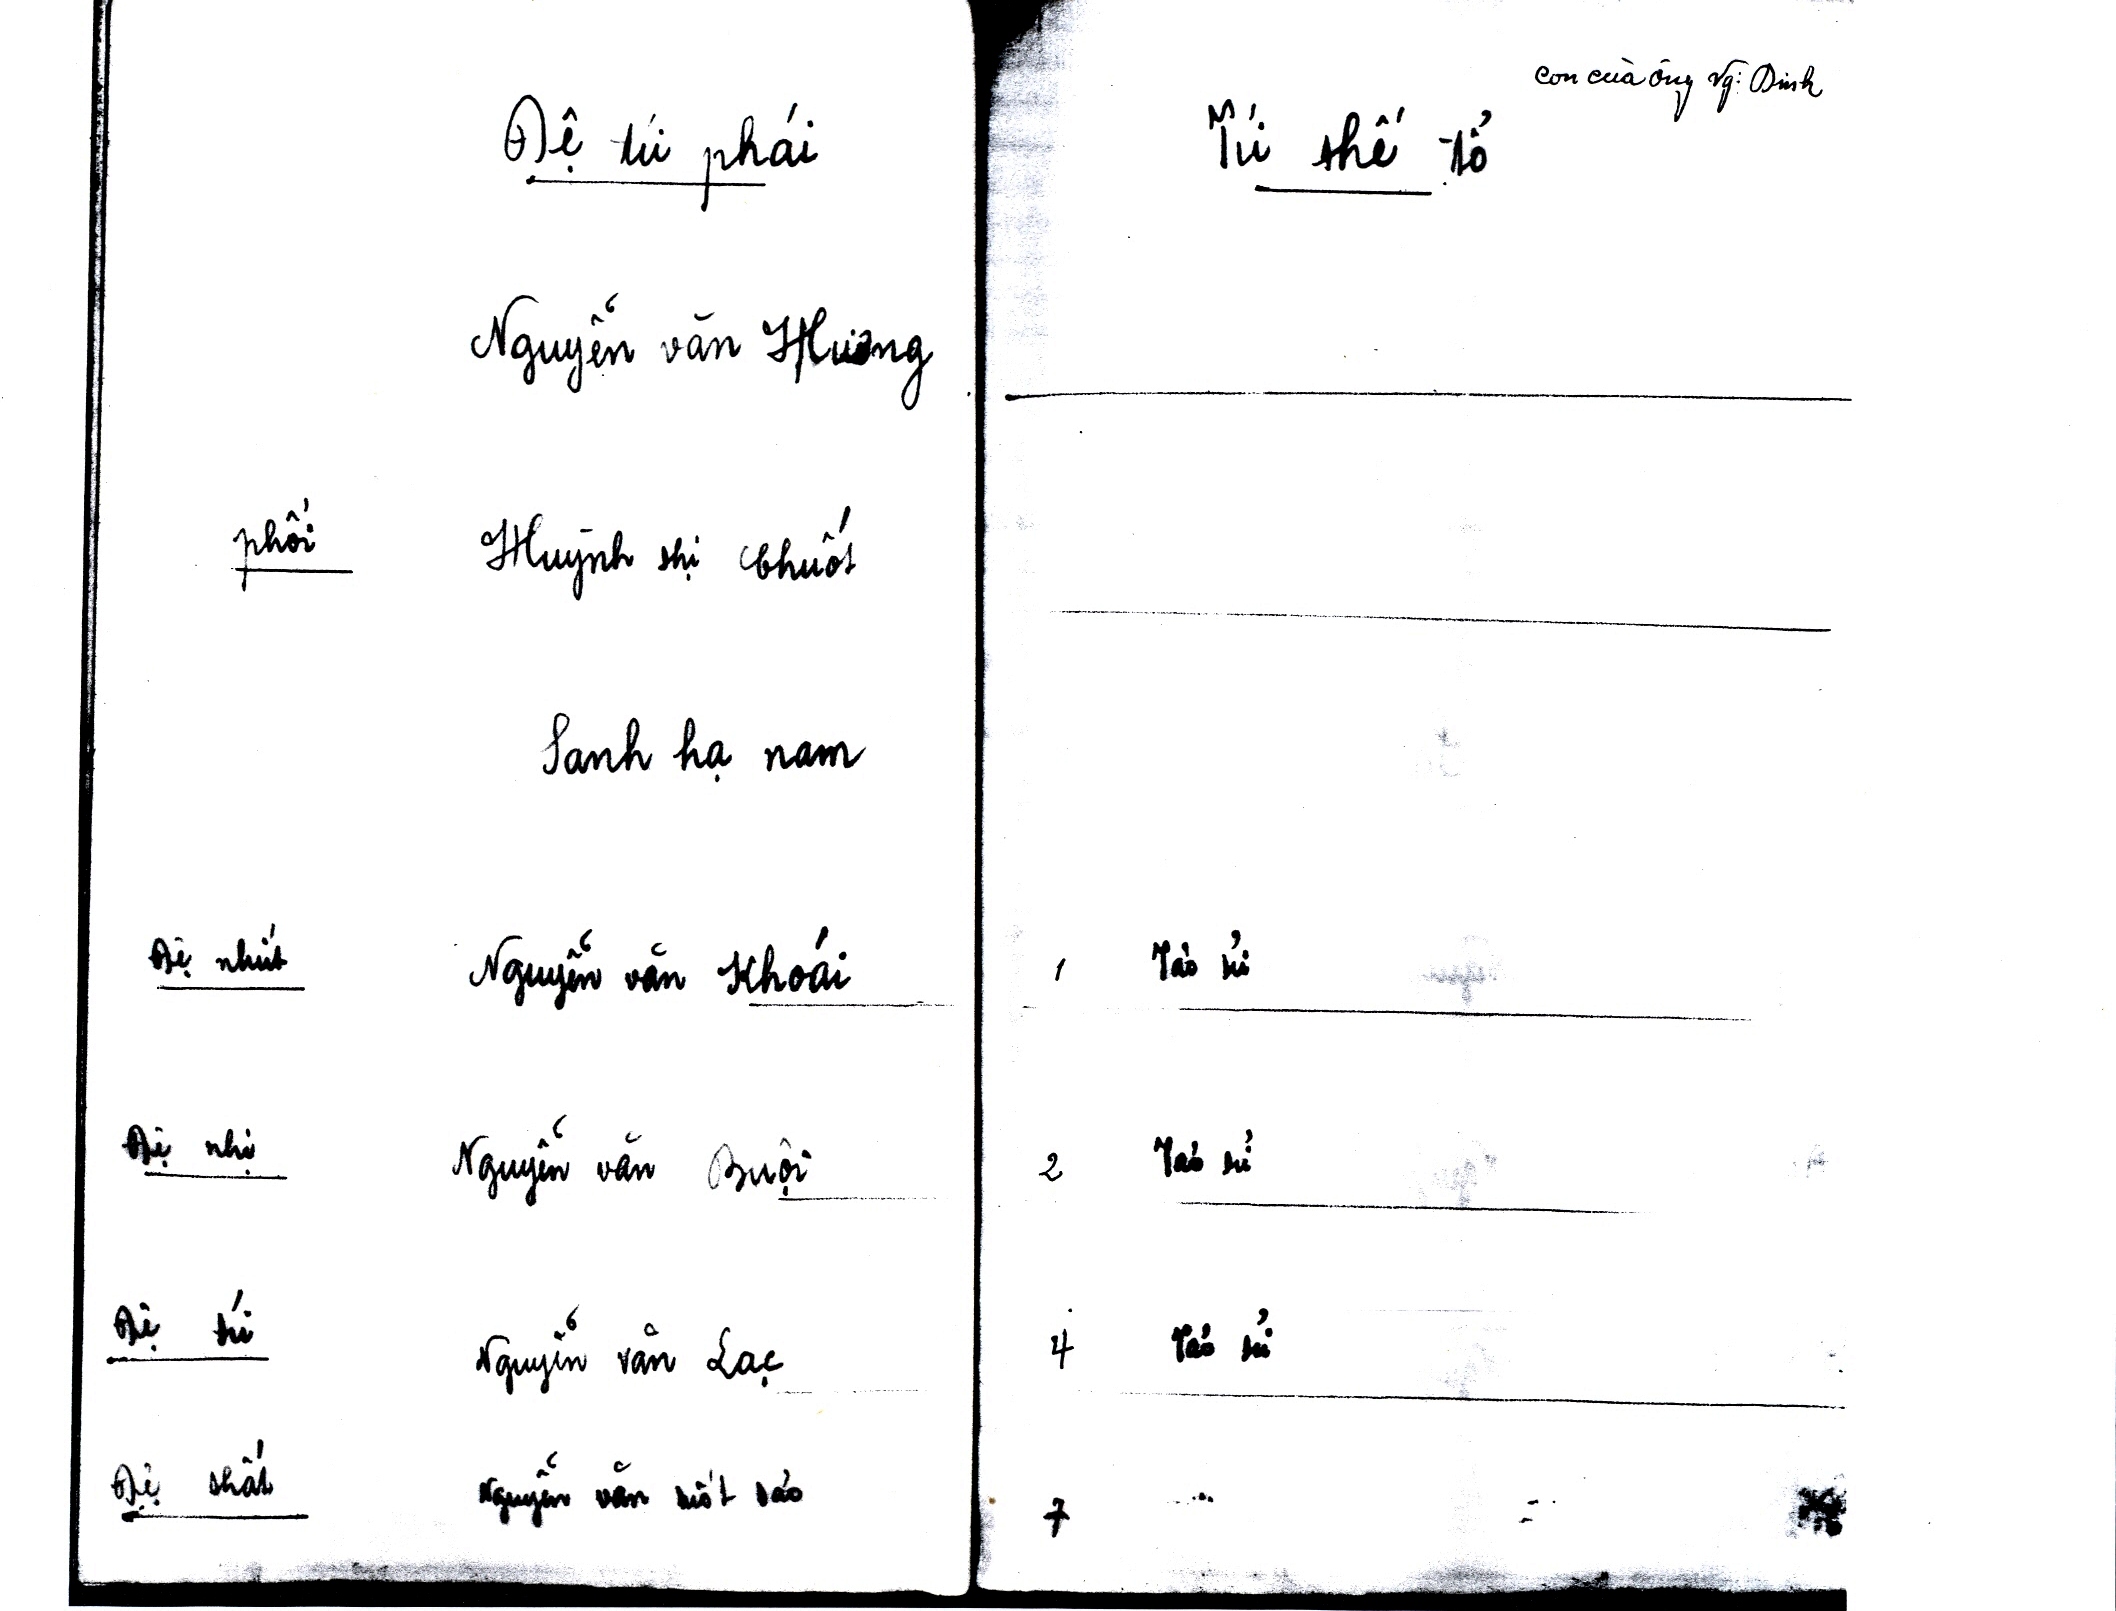 Đệ tứ phái
Nguyễn văn Hương
phối Huỳnh thị Chuốt
Sanh hạ nam
Đệ nhứt Nguyễn văn Khoái
Đệ nhị Nguyễn văn Buội
Đệ tứ Nguyễn văn Lạc
Đệ thất Nguyễn văn
con của ông Ng: Dinh
Tứ thế tổ
1 Tảo tử
2 Tảo tử
4 Tảo tử
7